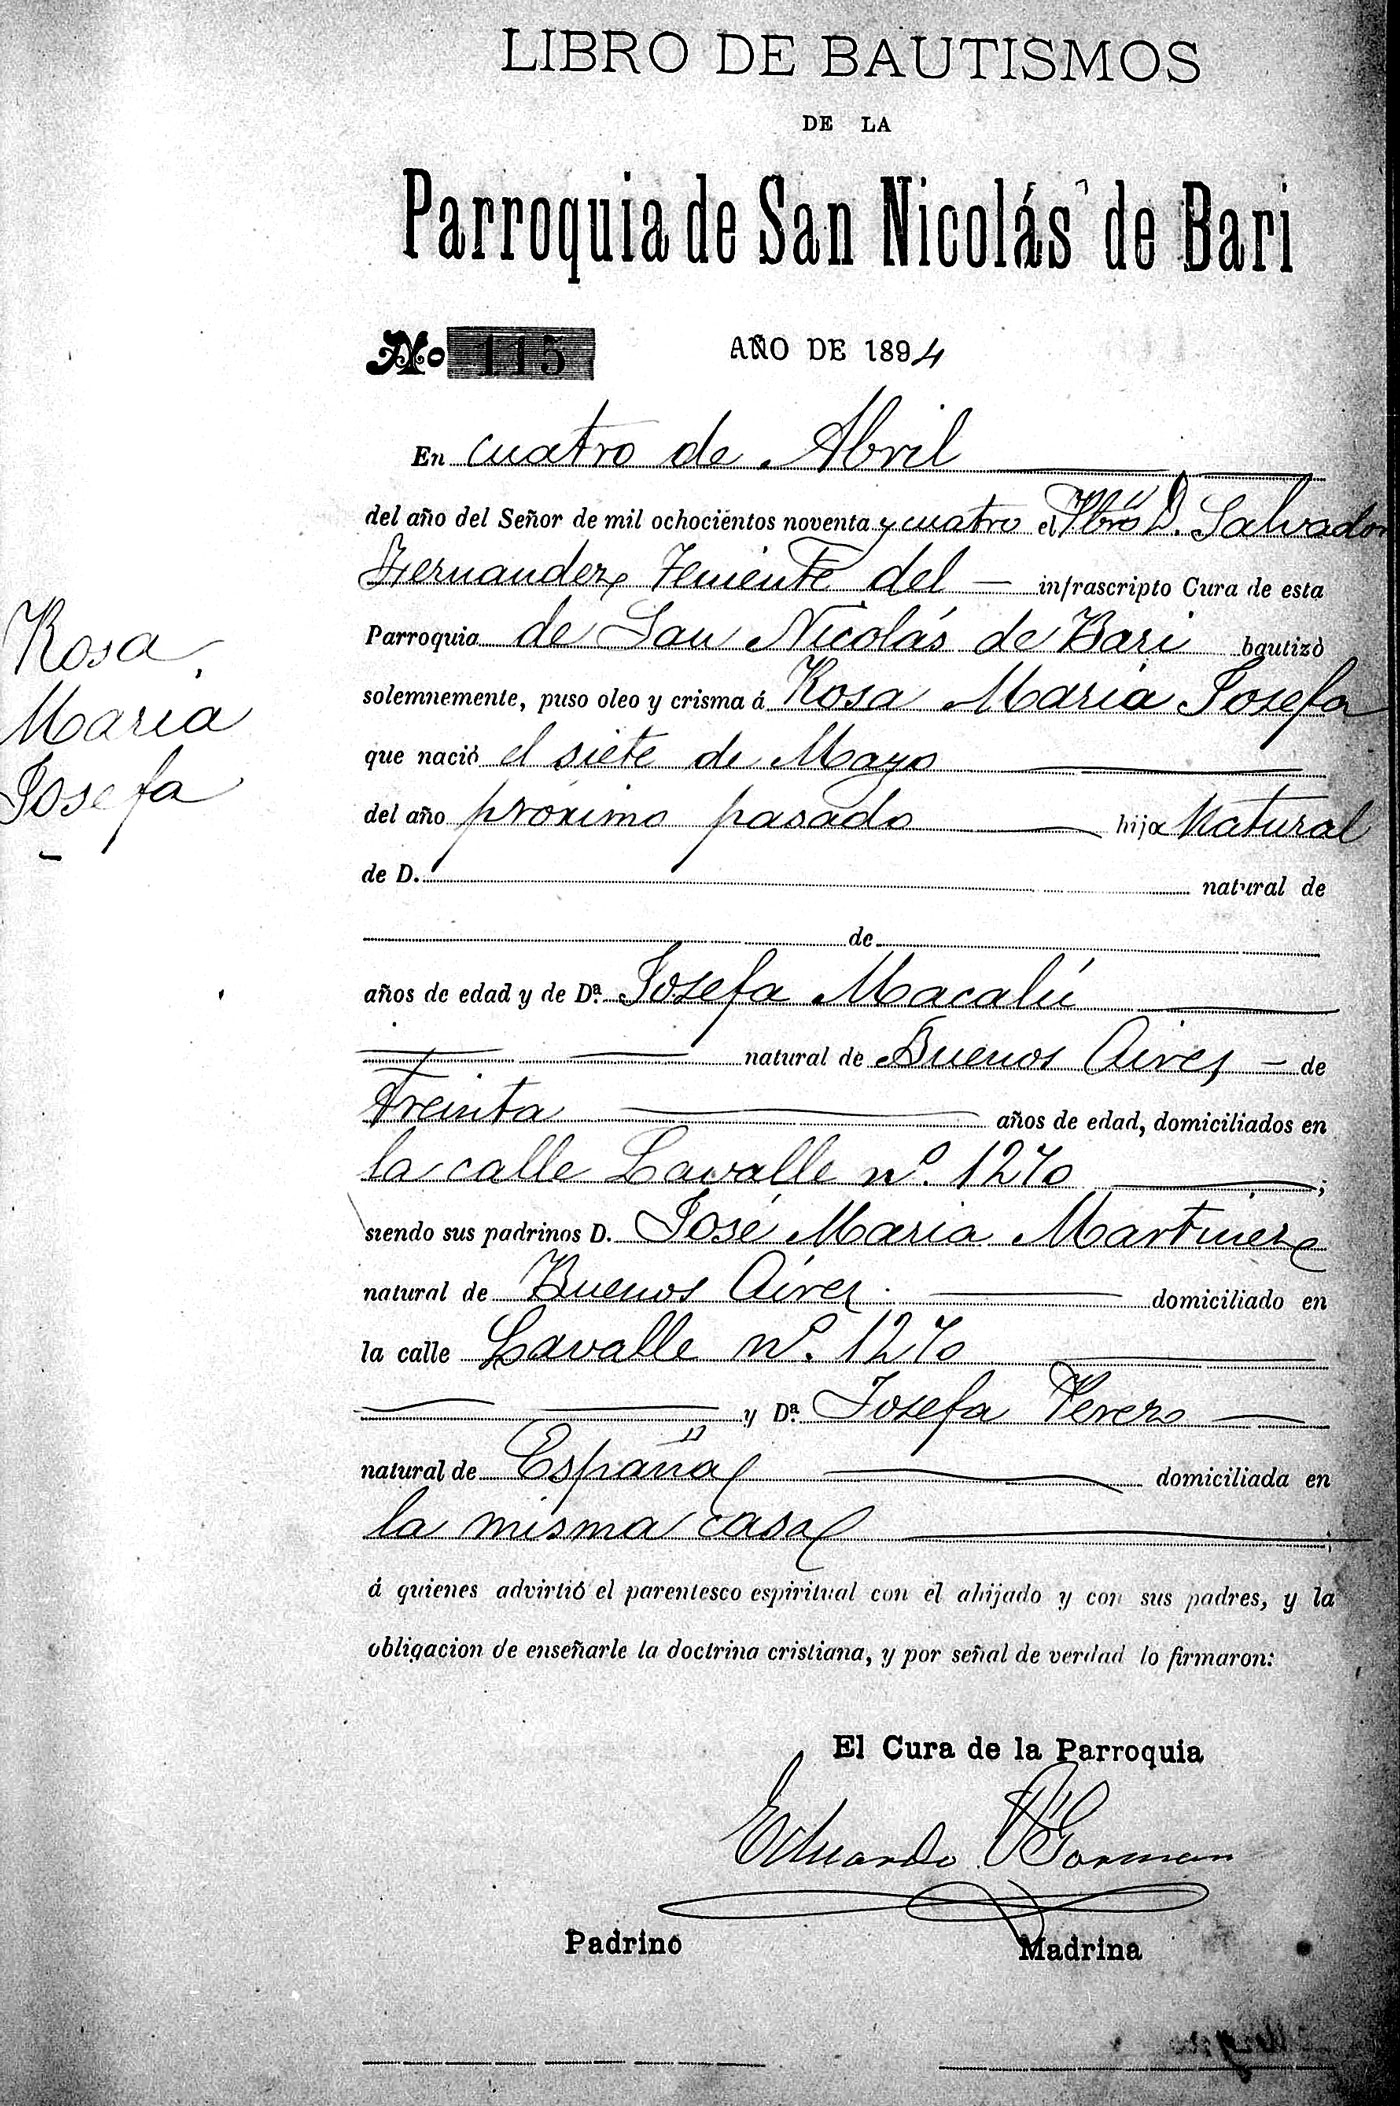 LIBRO DE BAUTISMOS
DE LA
Parroquia de San Nicolás de Bari
No 115 AÑO DE 1894
En cuatro de Abril
del año del Señor de mil ochocientos noventa y cuatro el Pbro D. Salvador
Hernandez Teniente del infrascripto Cura de esta
Parroquia de San Nicolás de Bari bautizó
solemnemente, puso oleo y crisma á Rosa Maria Josefa
que nació el siete de Mayo
del año próximo pasado hija Natural
de D. natural de
de
años de edad y de Dª. Josefa Macalú
natural de Buenos Aires de
treinta años de edad, domiciliados en
la calle Lavalle nº. 1270 ;
siendo sus padrinos D. José Maria Martinez
natural de Buenos Aires domiciliado en
la calle Lavalle nº. 1270
y Dª. Josefa Perez
natural de España domiciliada en
la misma casa ;
á quienes advirtió el parentesco espiritual con el ahijado y con sus padres, y la
obligacion de enseñarle la doctrina cristiana, y por señal de verdad lo firmaron:
El Cura de la Parroquia
Eduardo O'Gorman
Padrino Madrina
Rosa
Maria
Josefa